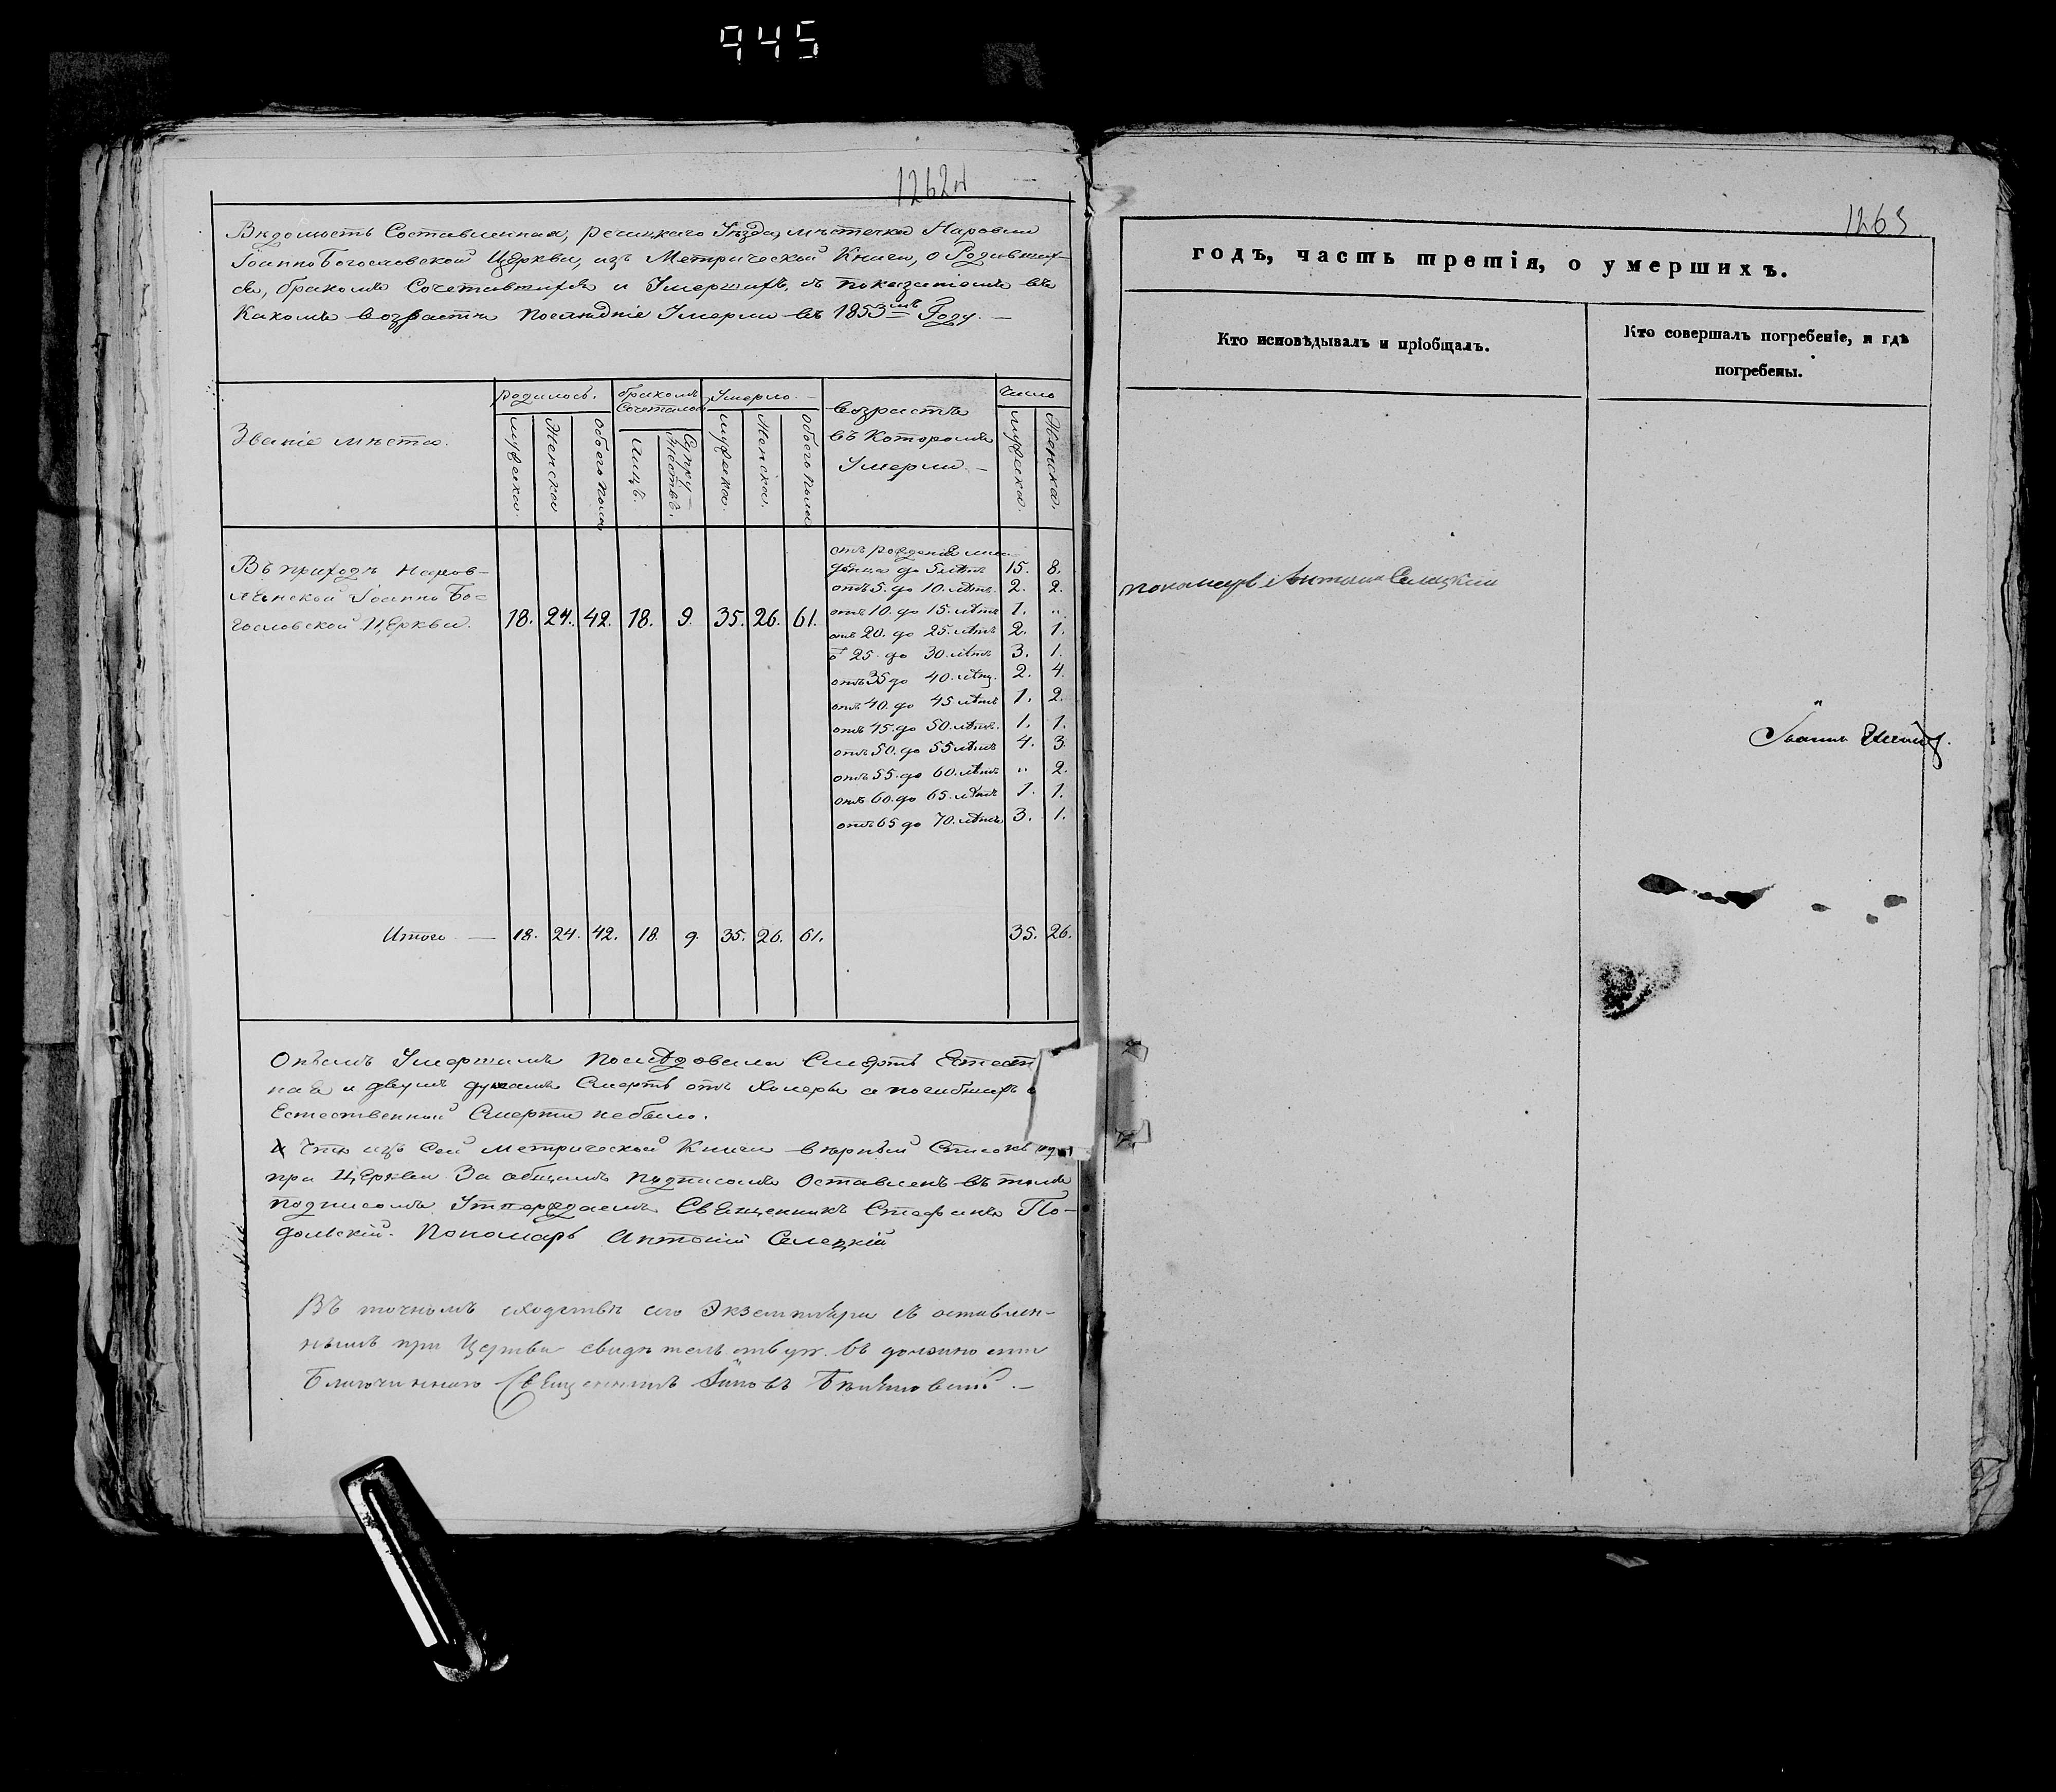 945
1262
Вѣдомость Составленная, речицкаго Уѣзда, мѣстечка Наровли
Іоанно Богословской Церкви, изъ Метрической Книги, о Родивших-
ся, бракомъ Сочетавшихся и Умершихъ, съ показаніемъ въ
Какомъ возрастѣ Послѣдніе Умерли въ 1853мъ Году. —
Званіе мѣста.
родилось.
мужеска.
Женска
обоего пола
бракомъ Сочеталось
лицъ.
Супру-жествъ.
Умерло. —
мужеска.
Женска.
обоего пола
возрастъ
въ Которомъ
Умерли. —
Число
мужеска.
Женска.
Въ приходѣ Наров-
лянской Іоанно Бо=
гословской Церкви.
18. 24. 42. 18. 9. 35. 26. 61.
отъ рожденія мла-
денца до 5 лѣтъ 15. 8.
отъ 5. до 10. лѣтъ. 2. 2.
отъ 10. до 15. лѣтъ 1. „
отъ 20. до 25. лѣтъ 2. 1.
25. до 30. лѣтъ 3. 1.
отъ 35 до 40. лѣтъ. 2. 4.
отъ 40. до 45. лѣтъ 1. 2.
отъ 45. до 50. лѣтъ. 1. 1.
отъ 50. до 55 лѣтъ 4. 3.
отъ 55. до 60. лѣтъ „ 2.
отъ 60. до 65. лѣтъ 1. 1.
отъ 65 до 70. лѣтъ 3. 1.
Итого — 18. 24. 42. 18. 9. 35. 26. 61. 35. 26.
Умершимъ Послѣдовала Смерть Естест
ная и двумъ душамъ Смерть отъ Холеры а погибшихъ
Естественной Смерти небыло.
Что изъ Сей метрической Книги вѣрный Списокъ
при Церкви За общимъ подписомъ Оставленъ въ томъ
подписомъ Утверждаемъ Священникъ Стефанъ По-
дольскій. Пономарь Антоній Селецкій
Въ точномъ сходствѣ сего Экземпляра съ оставлен-
нымъ при Церкви свидѣтельствую. въ должности
Благочиннаго Священникъ
1263
годъ, часть третія, о умершихъ.
Кто исповѣдывалъ и пріобщалъ.
Кто совершалъ погребеніе, и гдѣ
погребены.
пономарь Антоній Селецкій
Іоаннъ